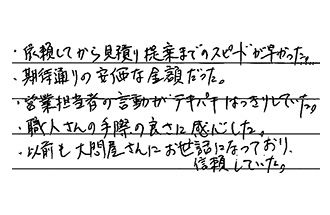 ・依頼してから見積り提案までのスピードが早かった。
・期待通りの安価な金額だった。
・営業担当者の言動がテキパキはっきりしていた。
・職人さんの手際の良さに感心した。
・以前も大問屋さんにお世話になっており、
信頼していた。